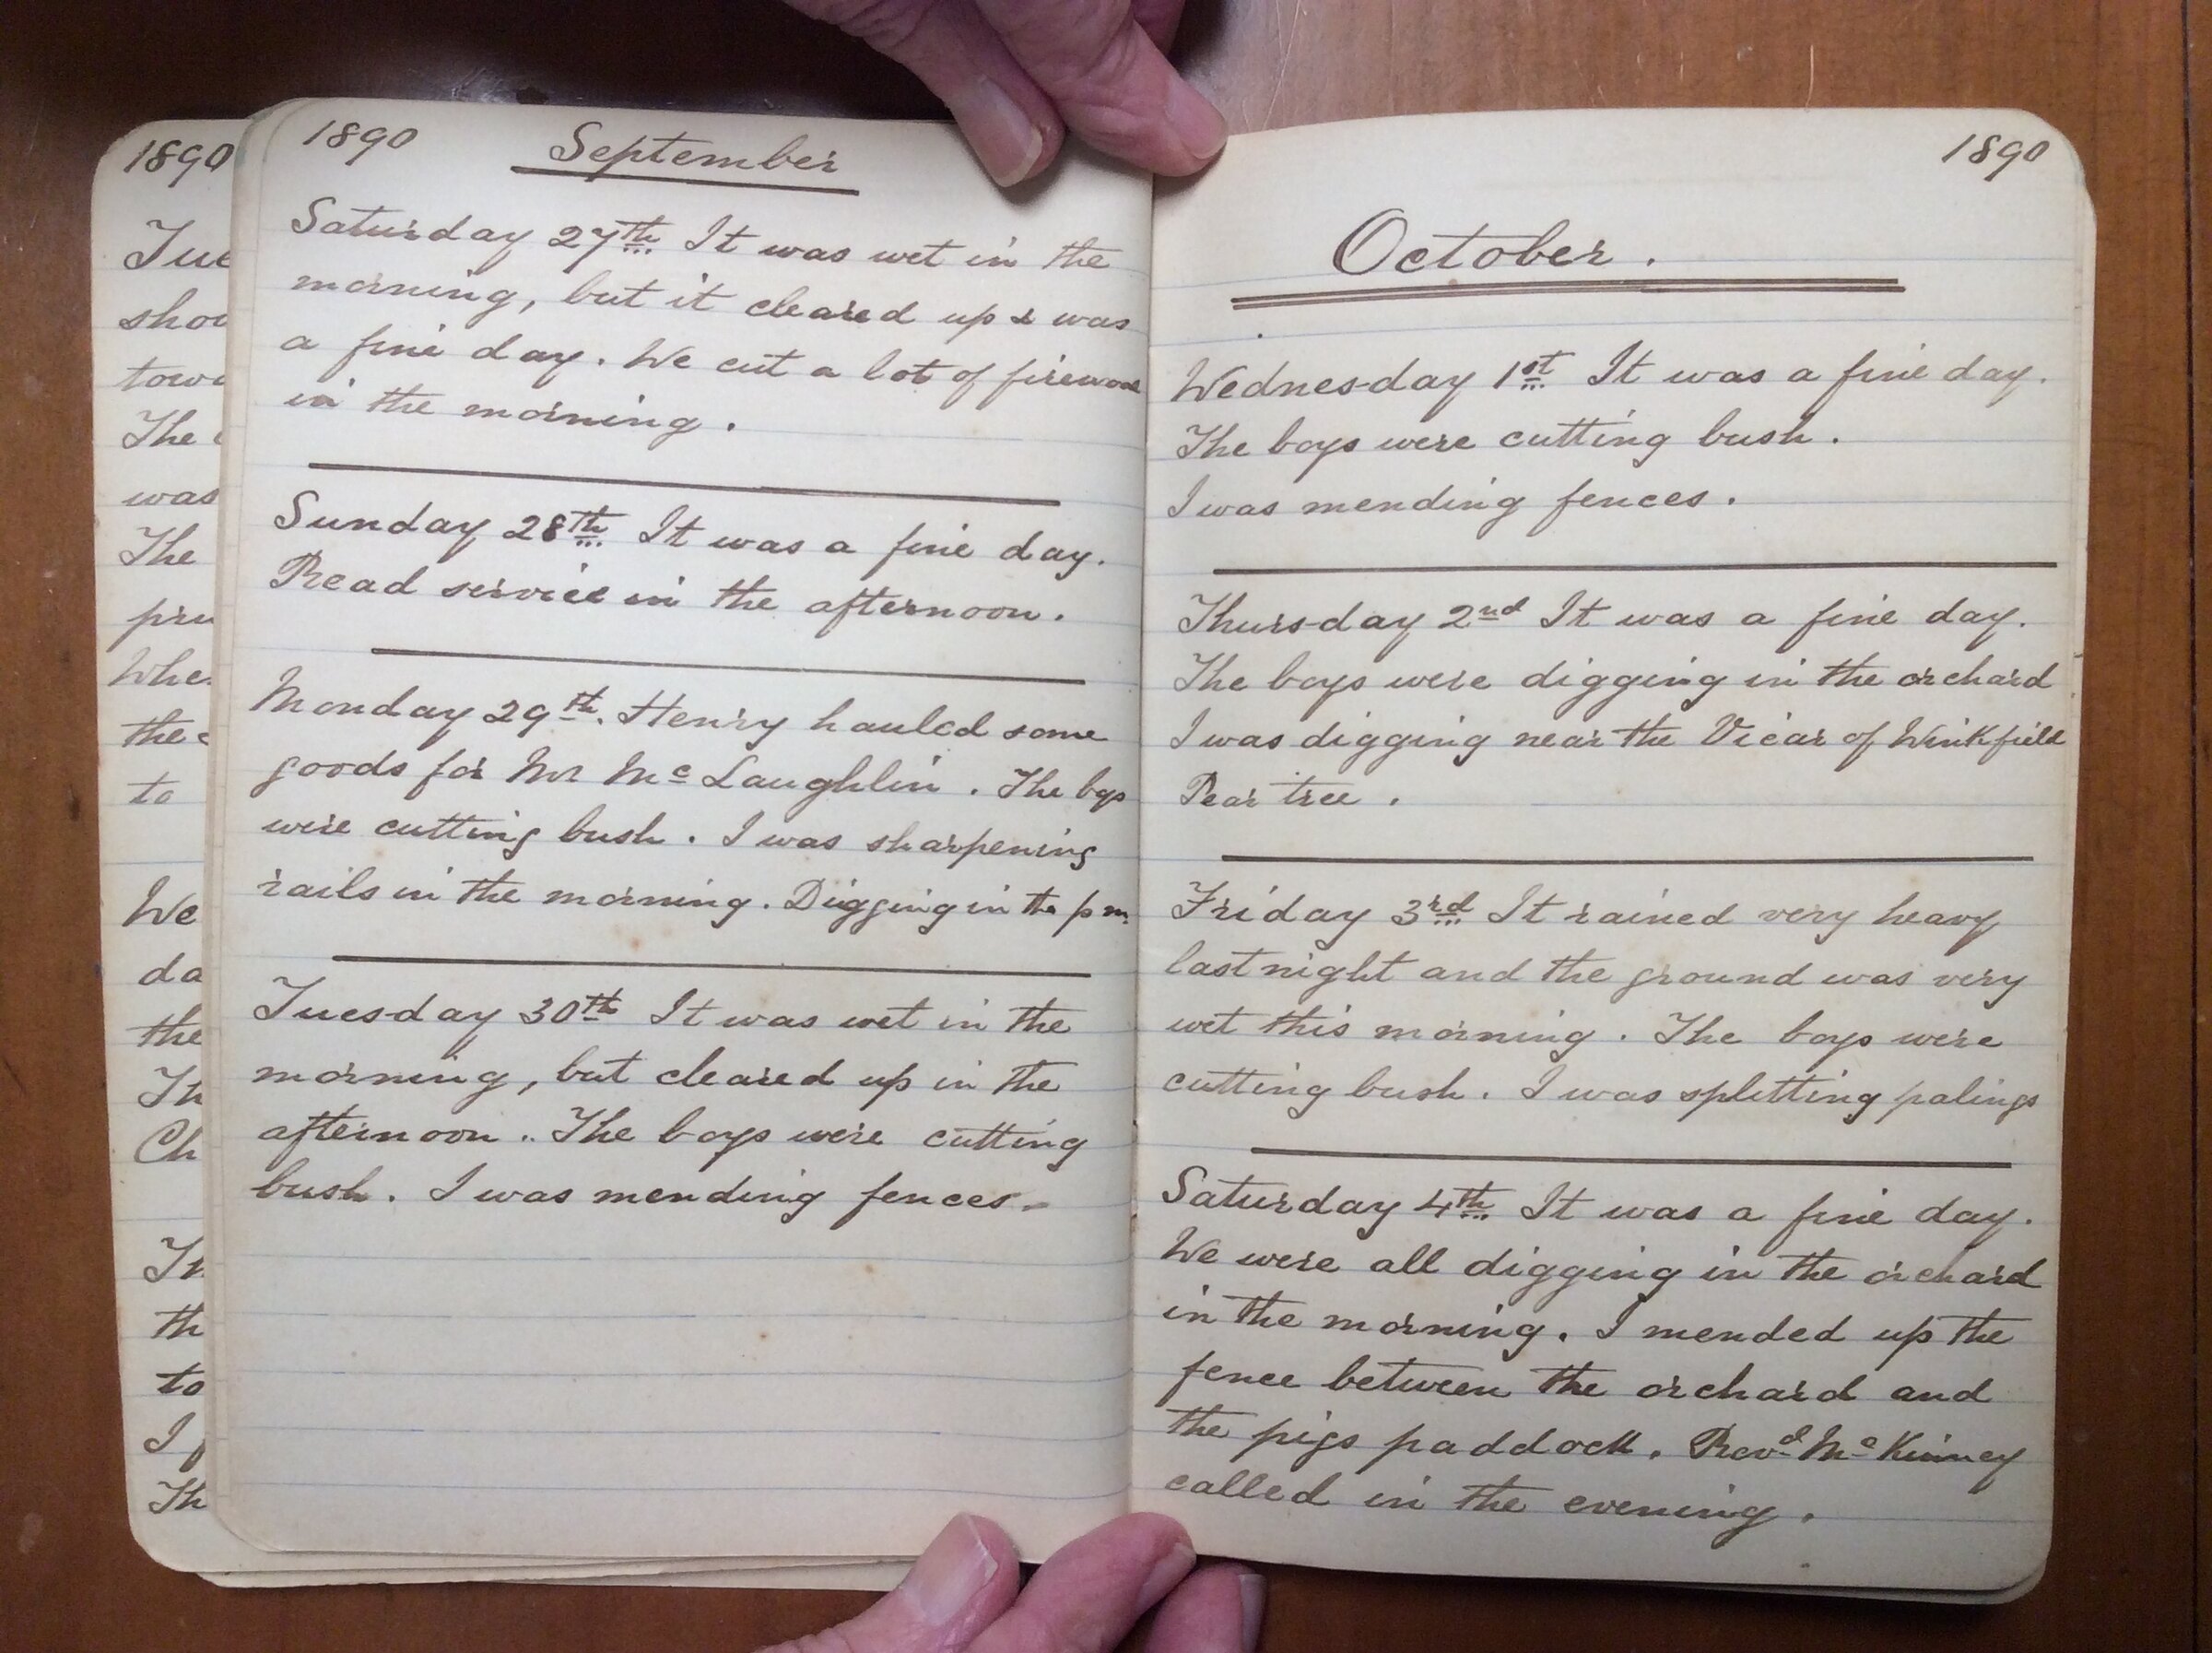 1890
Tue
shou
tow
The
was
The
pru
Whe
the
to
We
da
the
Th
Ch
th
to
I
Th
1890 September
Saturday 27th It was wet in the
morning, but it cleared up & was
a fine day. We cut a lot of firewood
in the morning.
Sunday 28th It was a fine day.
Read service in the afternoon.
Monday 29th. Henry hauled some
goods for Mr McLaughlin. The boys
were cutting bush. I was sharpening
rails in the morning. Digging in the pm.
Tuesday 30th It was wet in the
morning, but cleared up in the
afternoon.. The boys were cutting
bush. I was mending fences.
1890
October.
Wednesday 1st It was a fine day.
The boys were cutting bush.
I was mending fences.
Thursday 2nd It was a fine day.
The boys were digging in the orchard
I was digging near the Vicar of Winkfield
Pear tree.
Friday 3rd It rained very heavy
last night and the ground was very
wet this morning. The boys were
cutting bush. I was splitting palings
Saturday 4th It was a fine day.
We were all digging in the orchard
in the morning. I mended up the
fence between the orchard and
the pigs paddock. Revd McKinney
called in the evening.